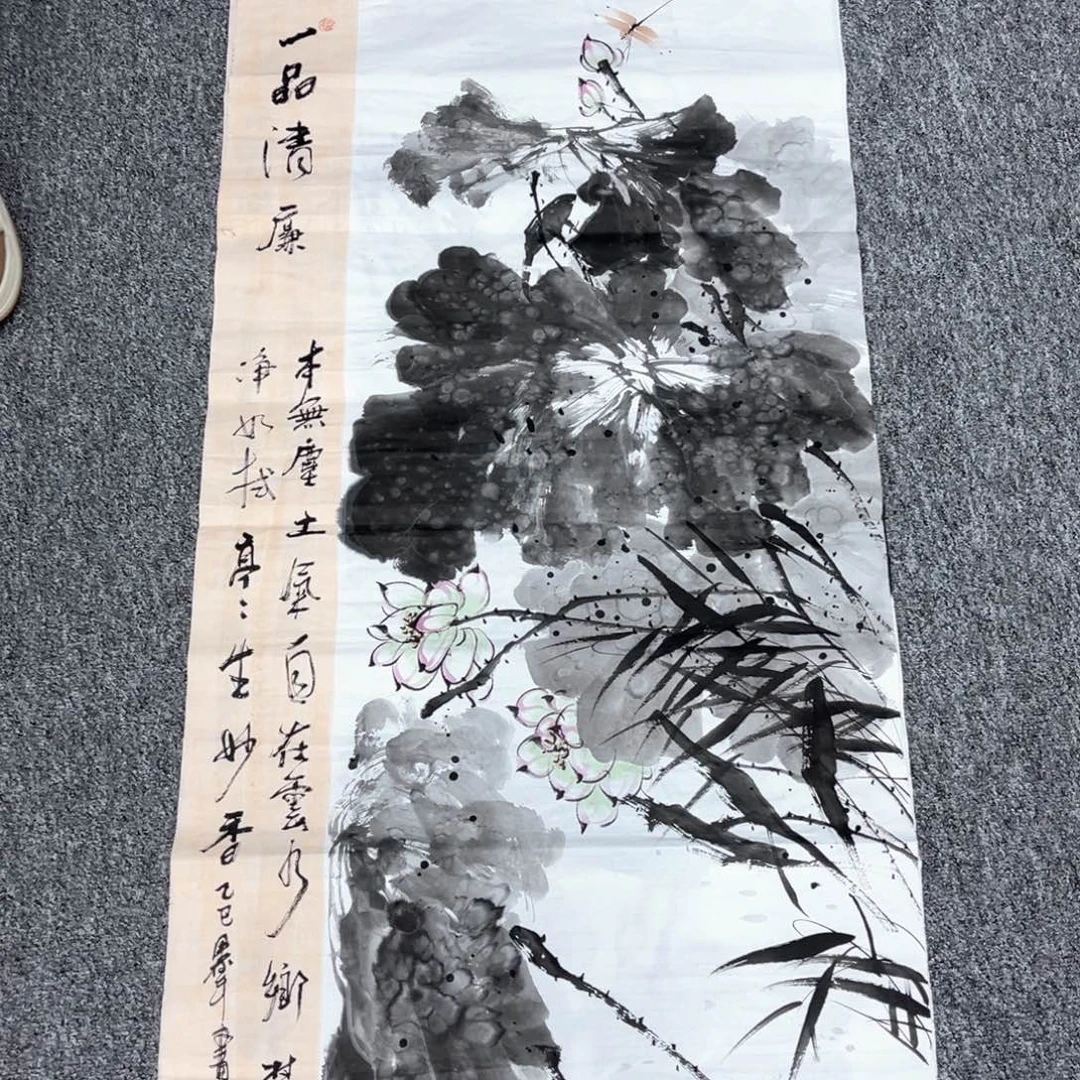 一品清廉
本無塵土氣自在雲水鄉
净如拭亭〻生妙香乙巳